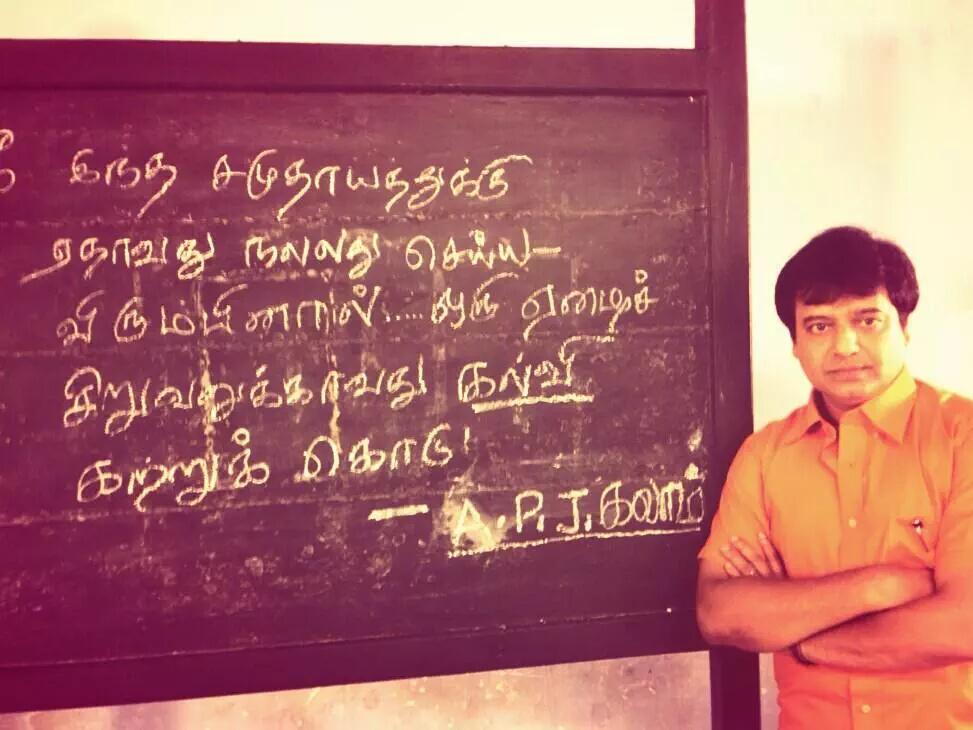 நீ இந்த சமுதாயத்துக்கு
ஏதாவது நல்லது செய்ய–
விரும்பினால்.... ஒரு ஏழைச்
சிறுவனுக்காவது கல்வி
கற்றுக் கொடு!
– A.P.J.கலாம்